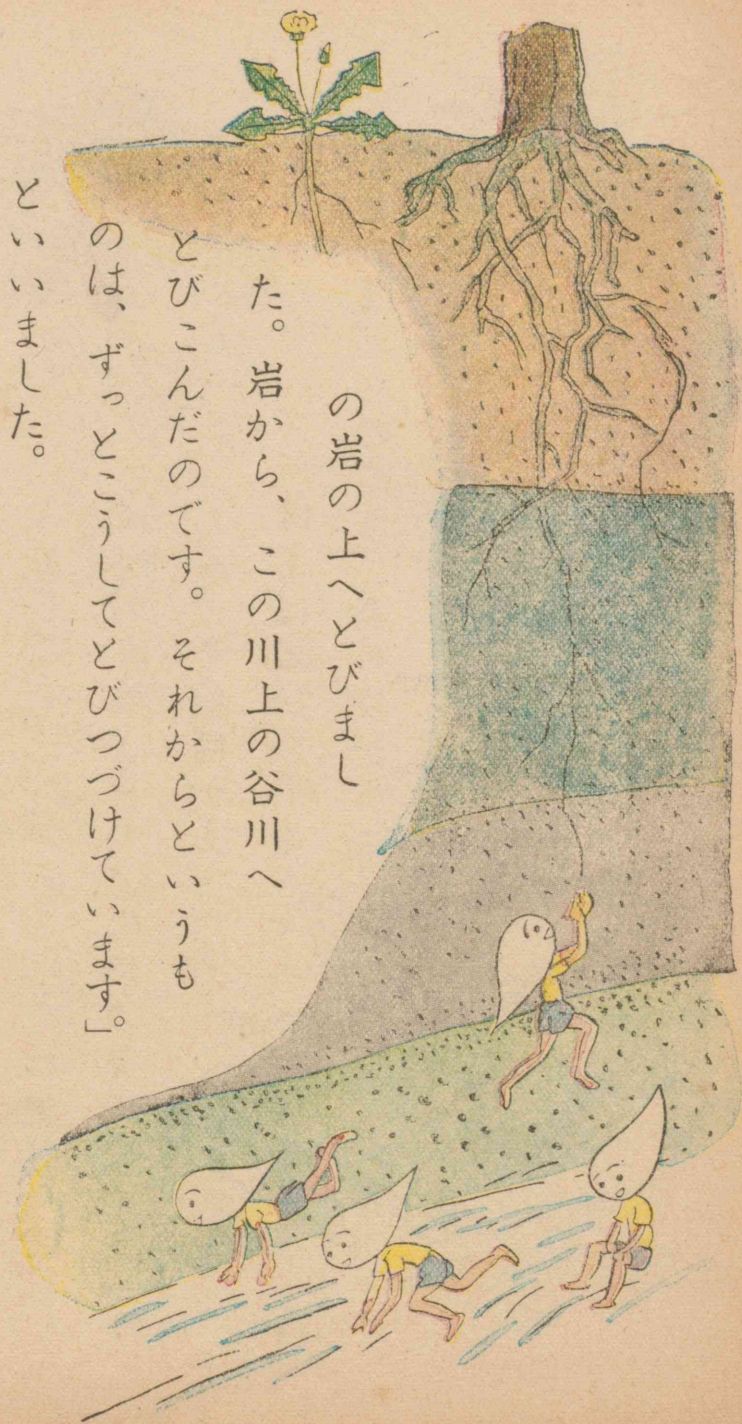 の岩の上へとびまし
た。岩から、この川上の谷川へ
とびこんだのです。それからというも
のは、ずっとこうしてとびつづけています」。
といいました。